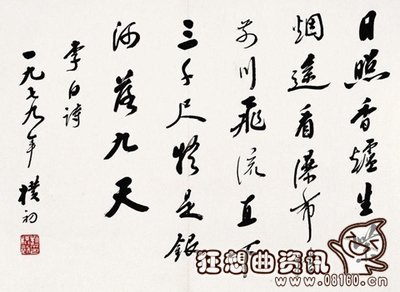 日照香爐生
烟遥看瀑布
前川飛流直下
三千尺疑是銀
河落九天
李白詩
一九七九年 樸初
狂想曲资讯
www.08160.cn